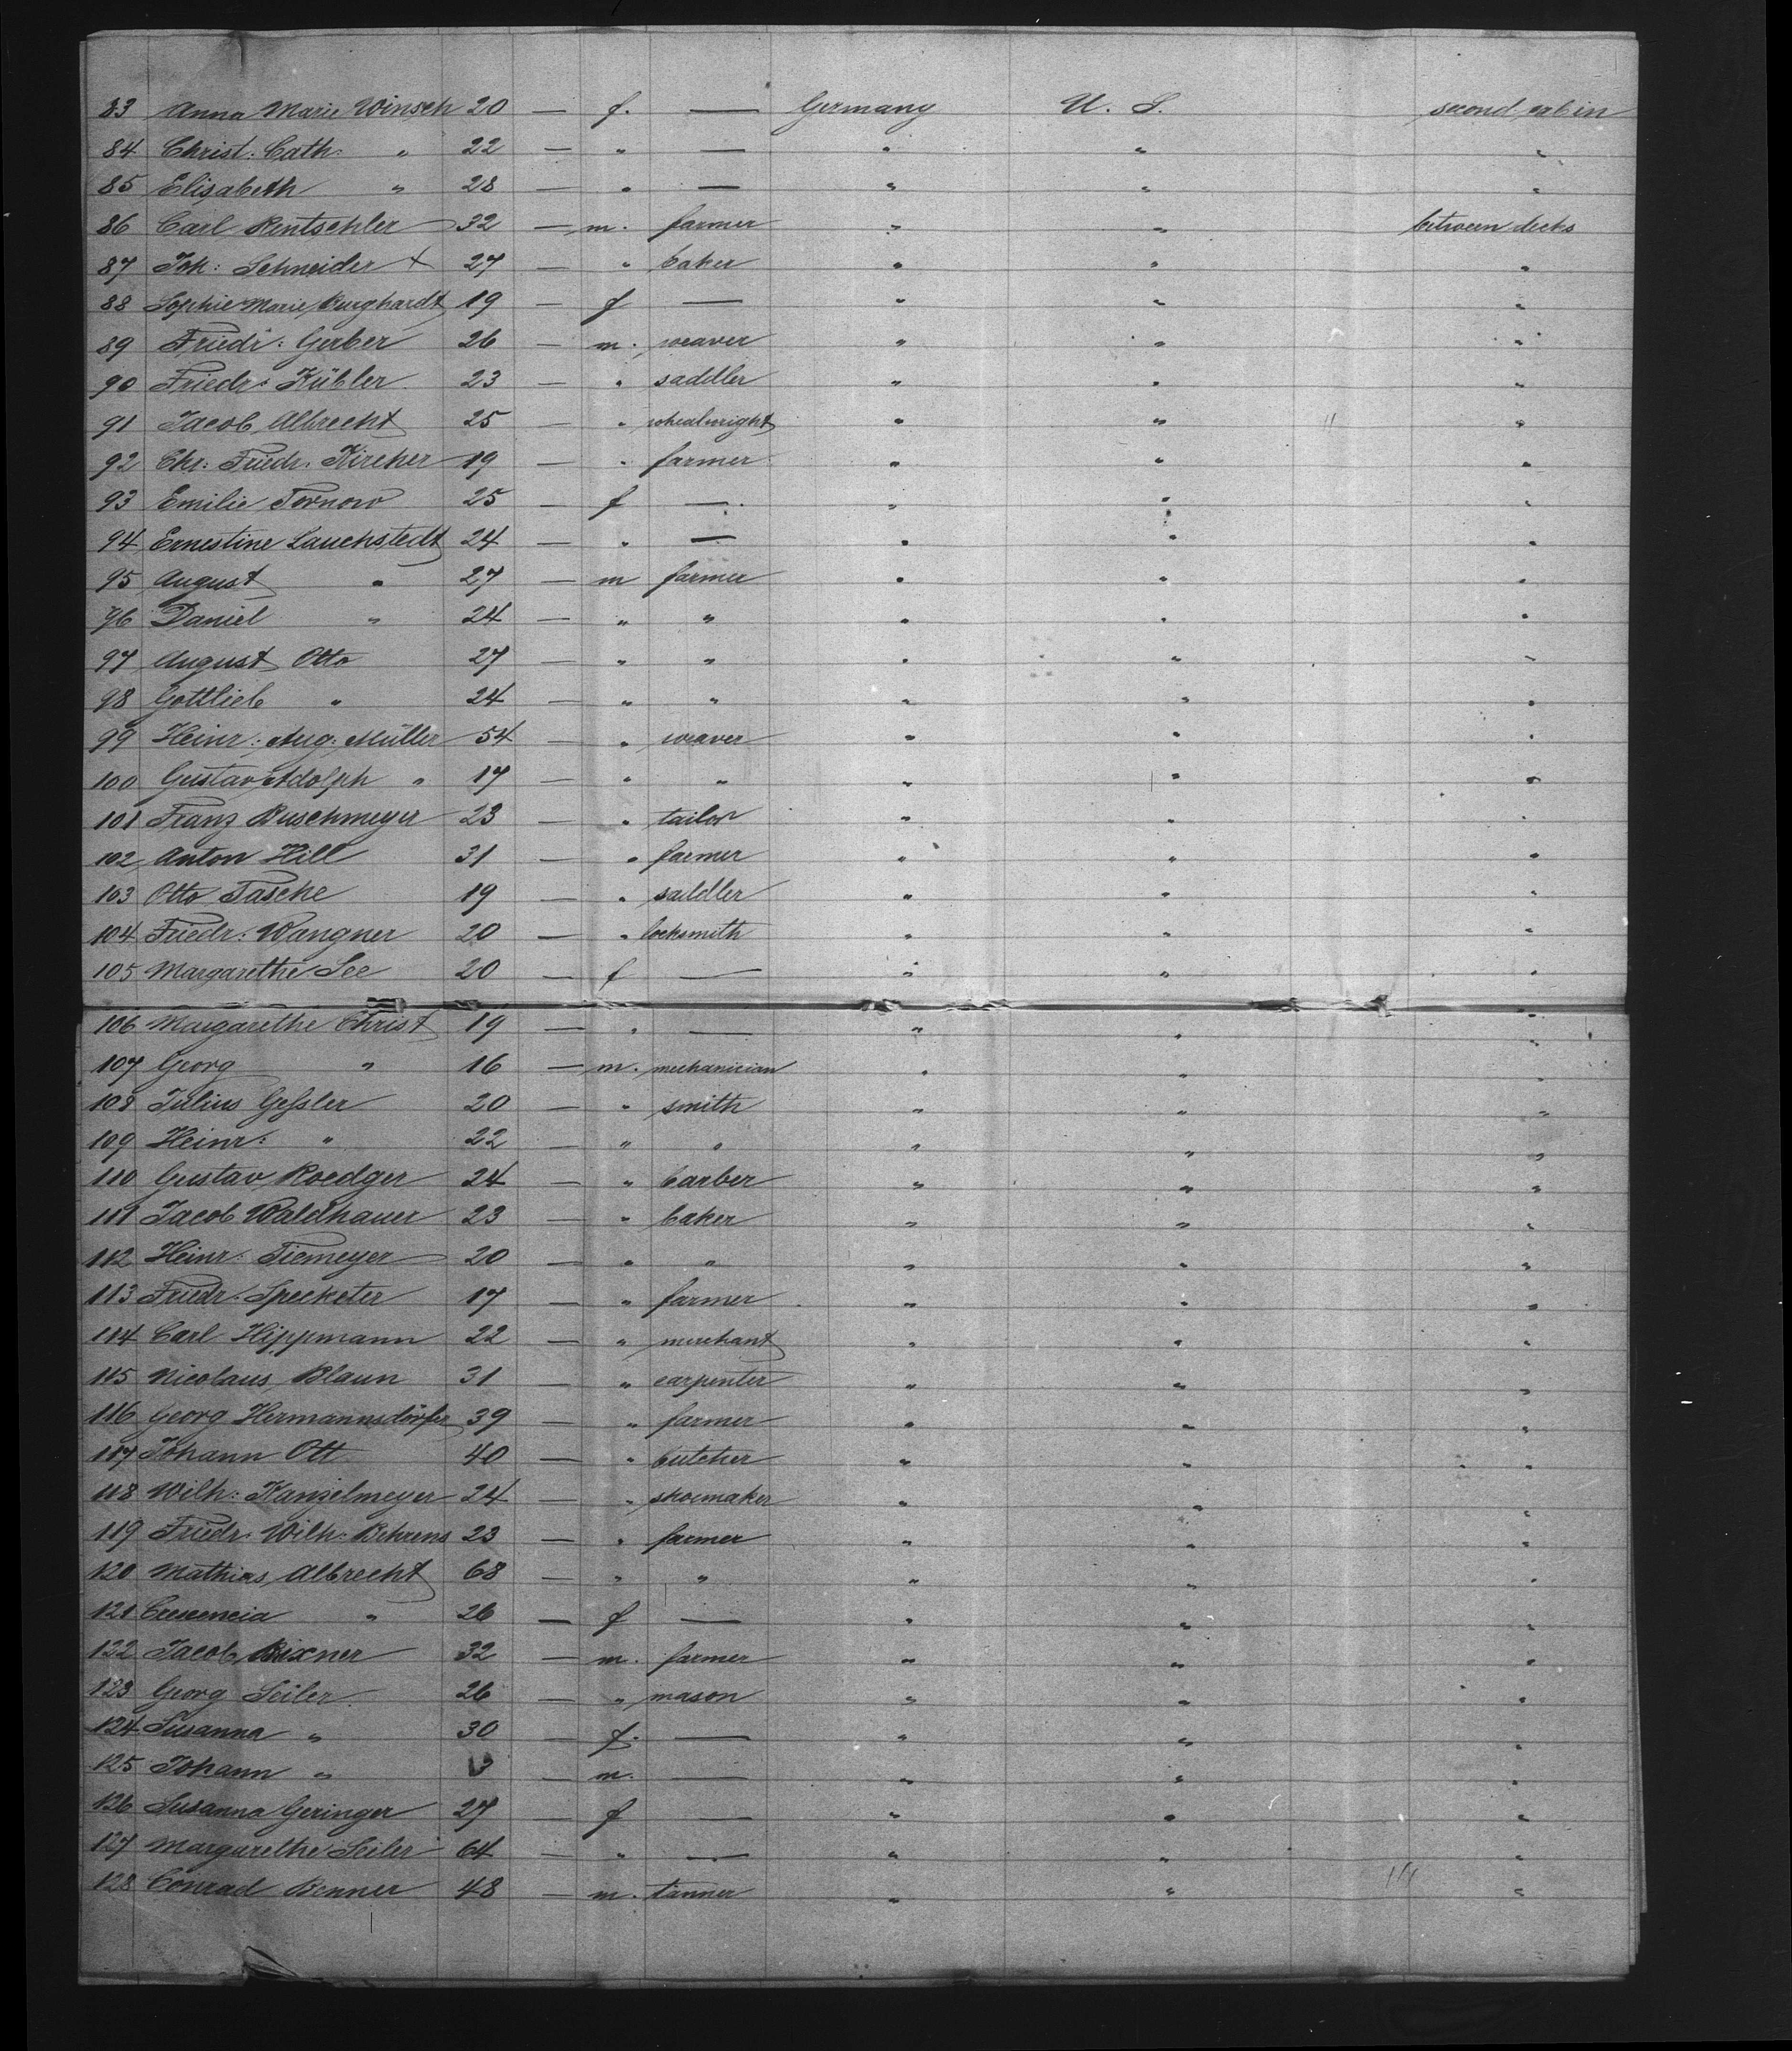 83 Anna Marie Winsch 20 — f. — Germany U. S. second cabin
84 Christ: Cath: " 22 — " — " " "
85 Elisabeth " 28 — " — " " "
86 Carl Rentschler 32 — m. farmer " " between decks
87 Joh: Schneider x 27 — " baker " " "
88 Sophie Marie Burghardt 19 — f — " " "
89 Friedr: Gerber 26 — m. weaver " " "
90 Friedr: Kübler 23 — " saddler " " "
91 Jacob Albrecht 25 — " whealwright " " "
92 Chr: Friedr. Kircher 19 — " farmer " " "
93 Emilie Tornow 25 — f — " " "
94 Ernestine Lauchstedt 24 — " — " " "
95 August " 27 — m farmer " " "
96 Daniel " 24 — " " " " "
97 August Otto 27 — " " " " "
98 Gottlieb " 24 — " " " " "
99 Heinr: Aug: Müller 54 — " weaver " " "
100 Gustav Adolph " 17 — " " " " "
101 Franz Buschmeyer 23 — " tailor " " "
102 Anton Hill 31 — " farmer " " "
103 Otto Tasche 19 — " saddler " " "
104 Friedr: Wangner 20 — " locksmith " " "
105 Margarethe See 20 — f — " " "
106 Margarethe Christ 19 — " — " " "
107 Georg " 16 — m. mechanician " " "
108 Julius Gessler 20 — " smith " " "
109 Heinr: " 22 — " " " " "
110 Gustav Roedger 24 — " barber " " "
111 Jacob Waldhauer 23 — " baker " " "
112 Heinr: Tiemeyer 20 — " " " " "
113 Friedr. Specketer 17 — " farmer " " "
114 Carl Hippmann 22 — " merchant " " "
115 Nicolaus Blaun 31 — " carpenter " " "
116 Georg Hermannsdörfer 39 — " farmer " " "
117 Johann Ott 40 — " butcher " " "
118 Wilh: Kanzelmeyer 24 — " shoemaker " " "
119 Friedr: Wilh: Behrens 23 — " farmer " " "
120 Mathias Albrecht 68 — " " " " "
121 Crescencia " 26 — f — " " "
122 Jacob Bixner 32 — m. farmer " " "
123 Georg Seiler 26 — " mason " " "
124 Susanna " 30 — f. — " " "
125 Johann " 3 — m. — " " "
126 Susanna Geringer 27 — f — " " "
127 Margarethe Seiler 64 — " — " " "
128 Conrad Benner 48 — m. tanner " " "